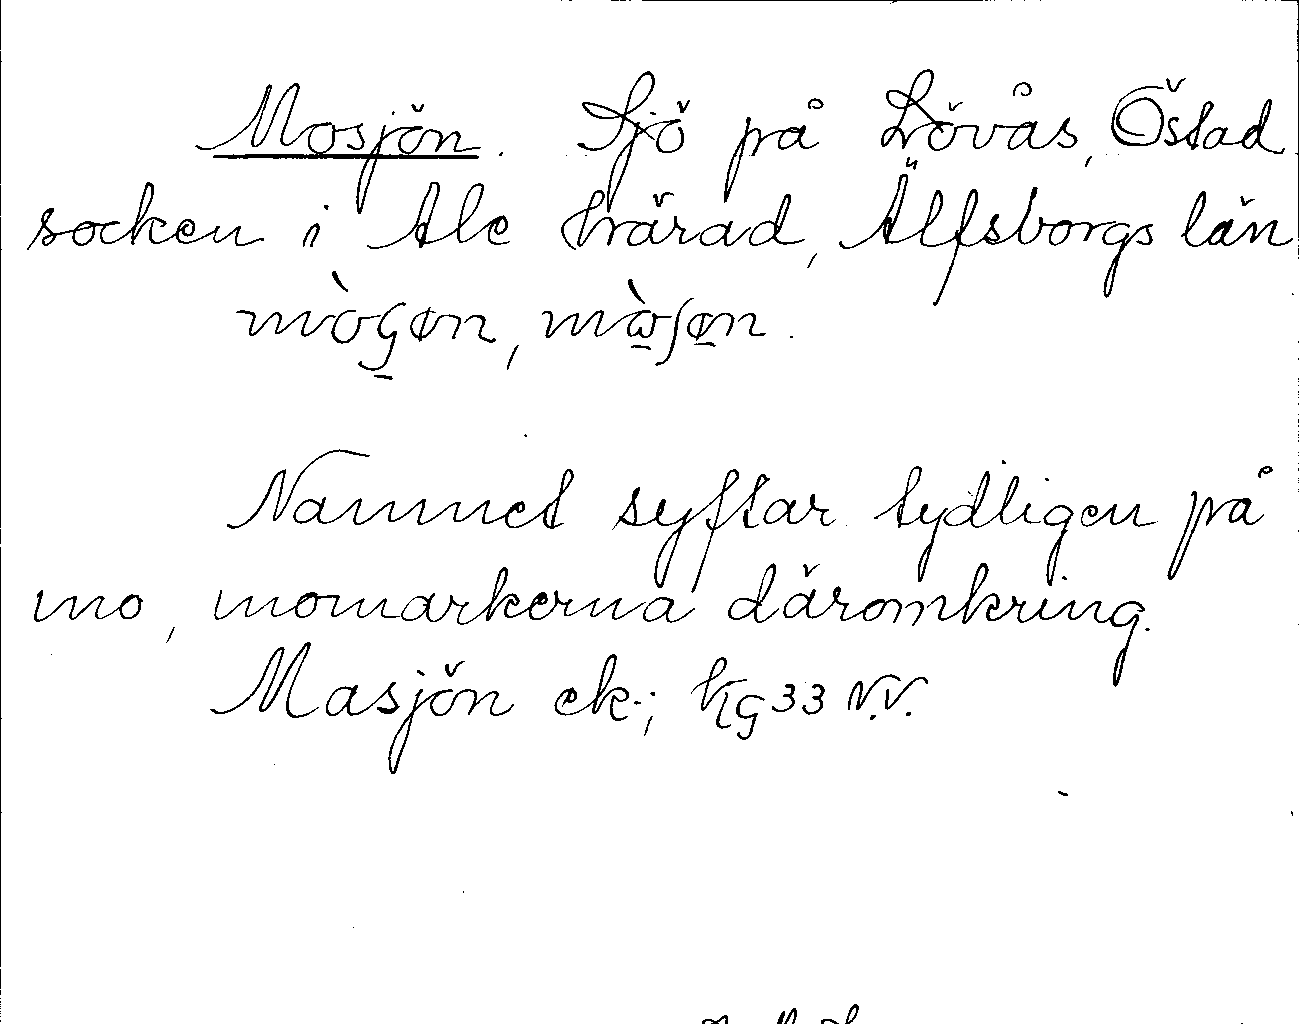 Mosjön. Sjö på Lövås, Östad
socken i Ale härad, Älfsborgs län
Namnet syftar tydligen på
mo, momarkerna däromkring.
Masjön ek.; KG 33 N.V.